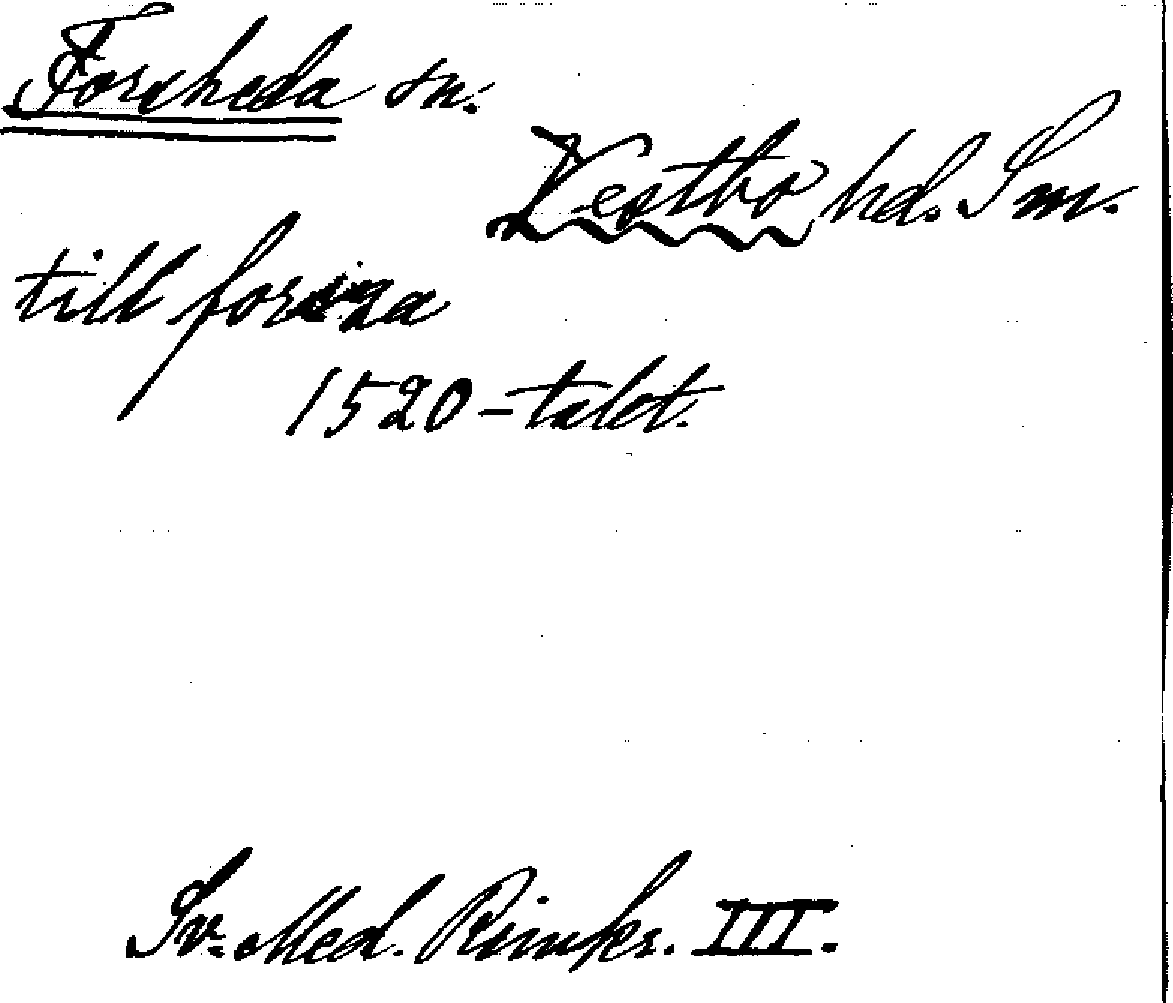 Forsheda sn.
Vestbo hd. Sm.
till
1520-talet.
Sv. Med. Rimkr. III.